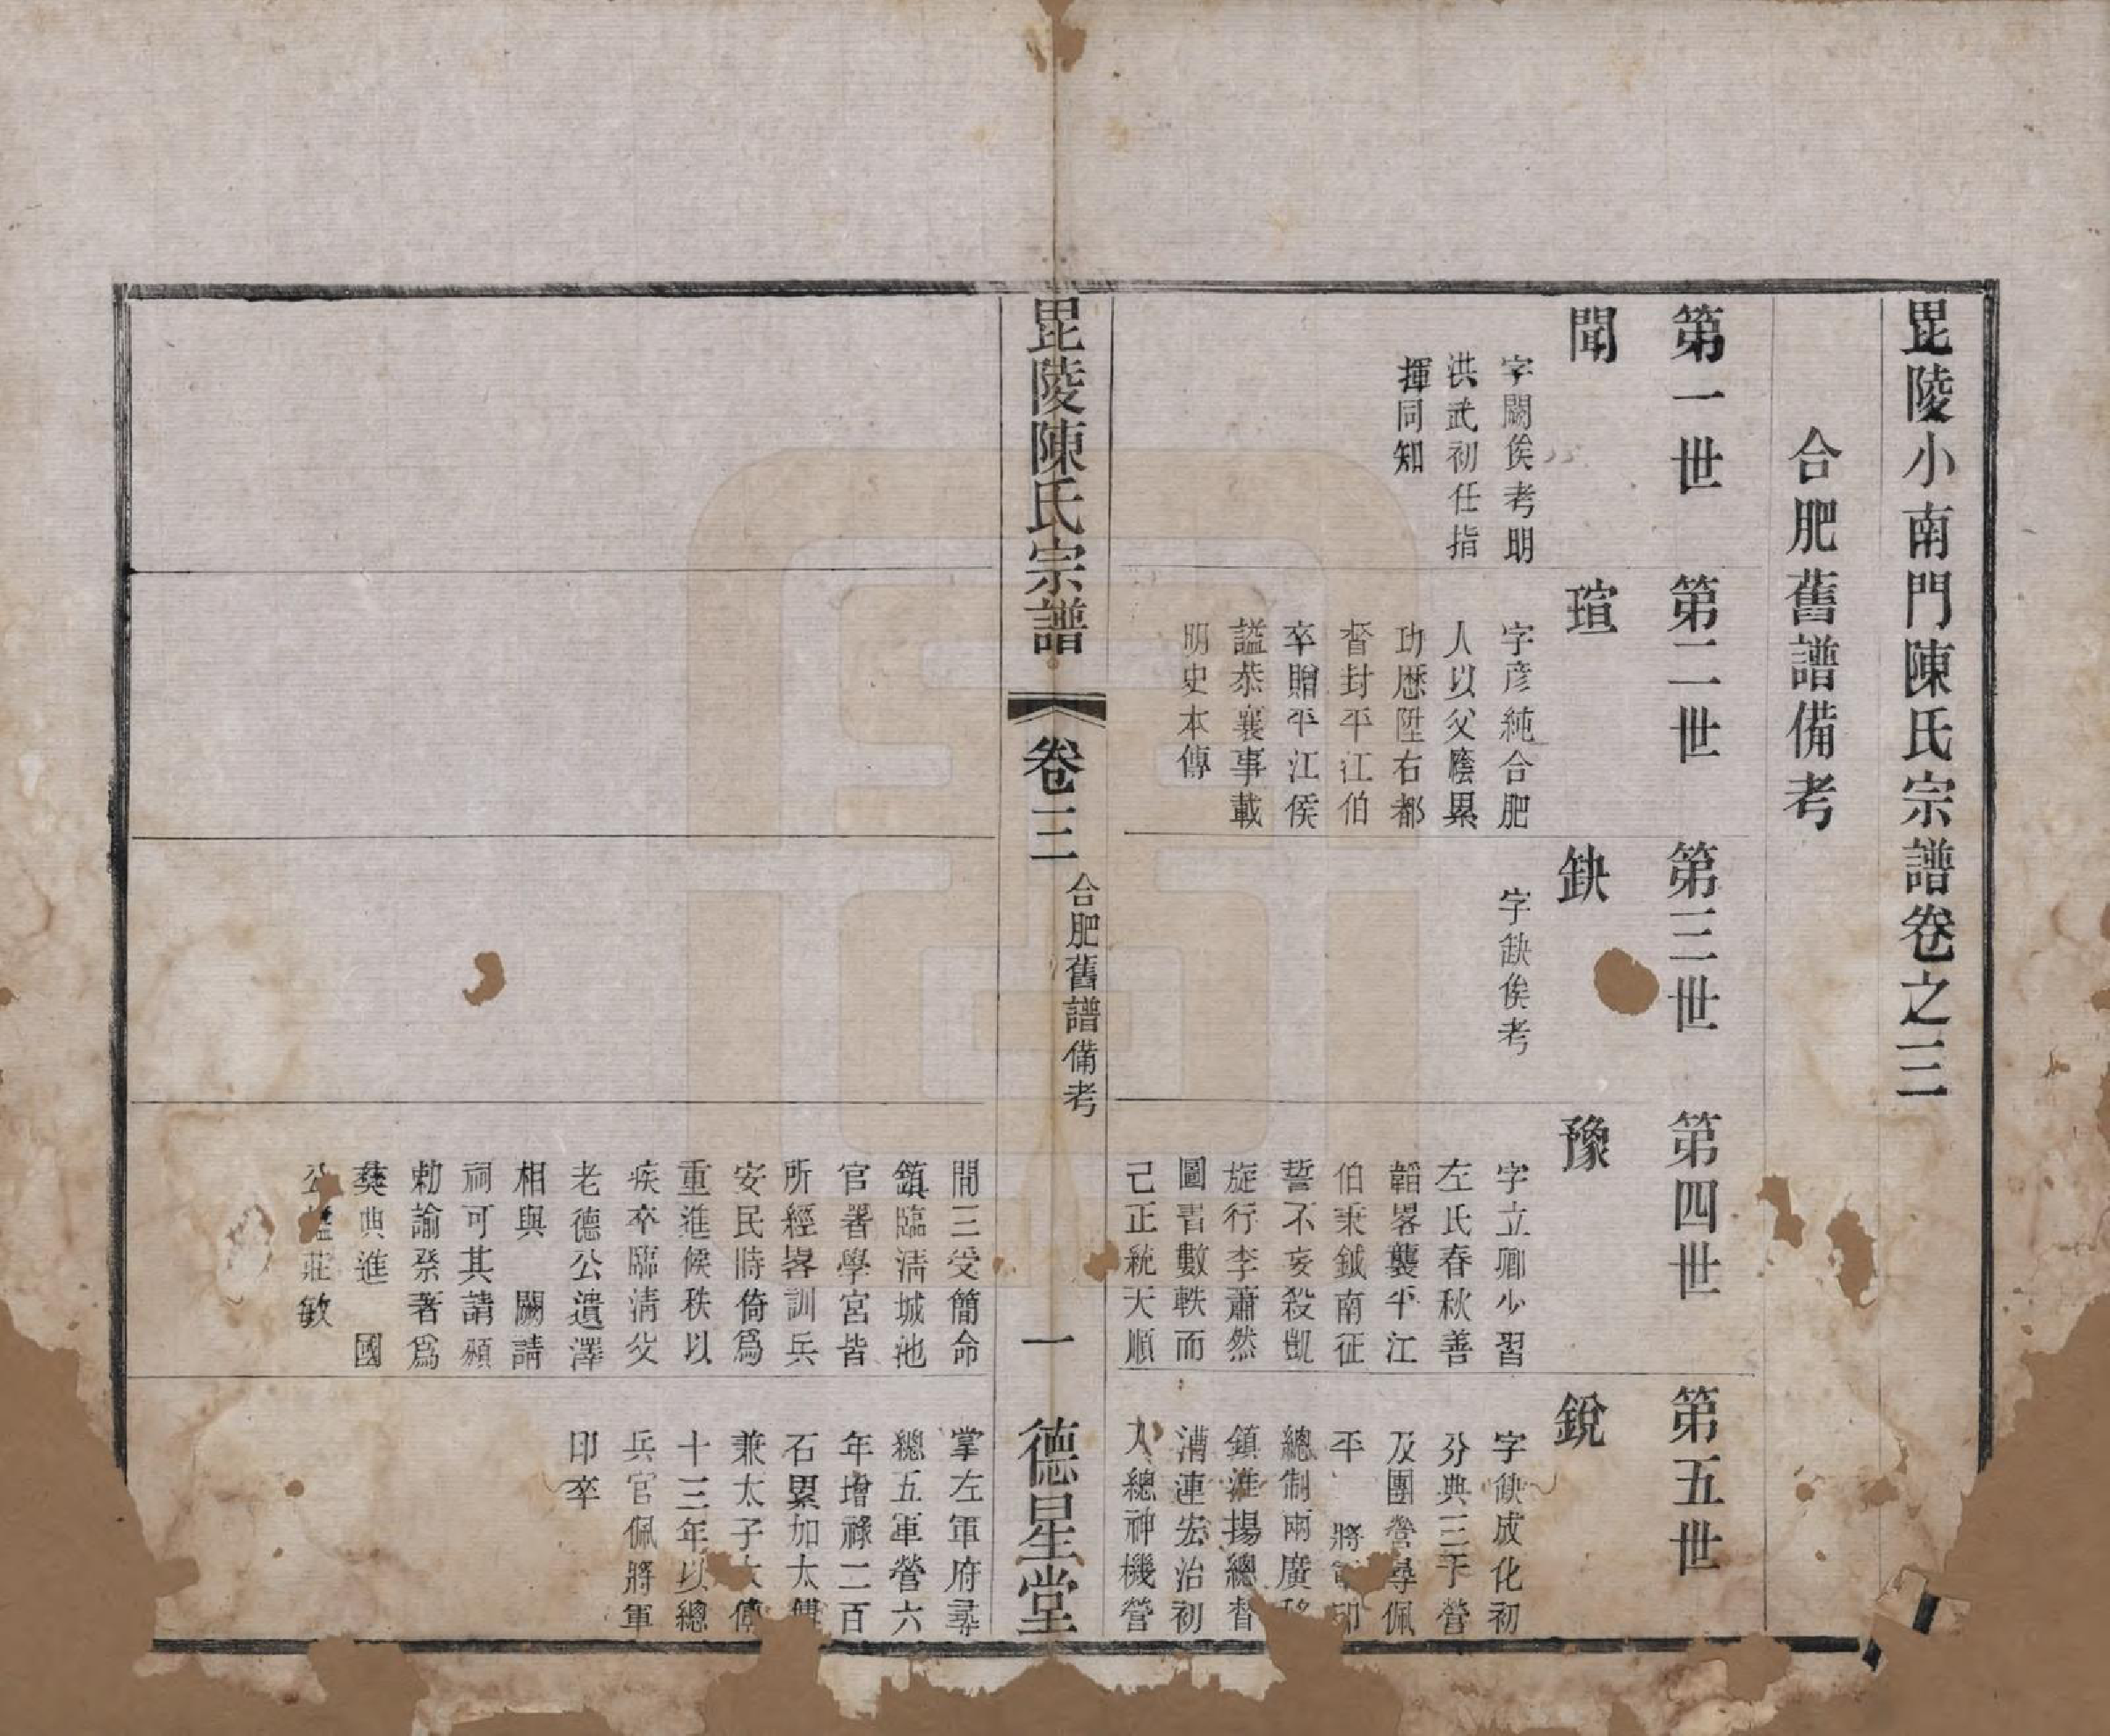 毘陵小南門陳氏宗譜卷之三
合肥舊譜備考
第一世
第二世
第三世
第四世
第五世
聞
字闕俟考明
洪武初任指
揮同知
瑄
字彥純合肥
人以父廕累
功歷陞右都
督封平江伯
卒贈平江侯
諡恭襄事載
明史本傳
缺
字缺俟考
豫
字立卿少習
左氏春秋善
韜畧襲平江
伯秉鉞南征
誓不妄殺凱
旋行李蕭然
圖書數軼而
己正統天順
間三受簡命
鎮臨清城池
官署學宮皆
所經畧訓兵
安民時倚爲
重進侯秩以
疾卒臨清父
老德公遺澤
相與 闕請
祠可其請頒
勅諭祭著爲
彝典進 國
公諡莊敏
銳
字缺成化初
分典三千營
及團營尋佩
平 將 印
總制兩廣移
鎮淮揚總督
漕運宏治初
入總神機營
掌左軍府尋
總五軍營六
年增祿二百
石累加太傅
兼太子太傅
十三年以總
兵官佩將軍
印卒
毘陵陳氏宗譜
卷三
合肥舊譜備考
一
德星堂